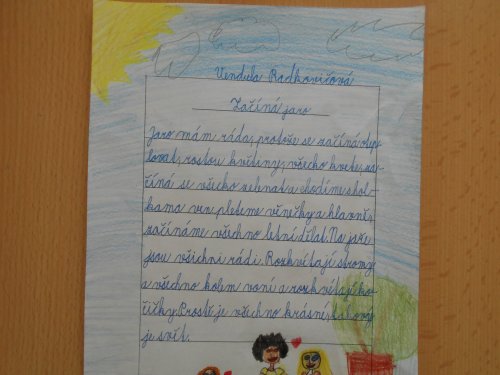 Vendula Radkovičová
Začíná jaro
Jaro mám ráda, protože se začíná otep-
lovat, rostou květiny, všecko kvete, za-
číná se všecko zelenat a chodíme s hol-
kama ven, pleteme věnečky a hlavně,
začínáme všechno letní dělat. Na jaře
jsou všichni rádi. Rozkvítají stromy
a všechno kolem voní a rozkvítají ko-
čičky. Prostě je všechno krásní, takový
je svět.